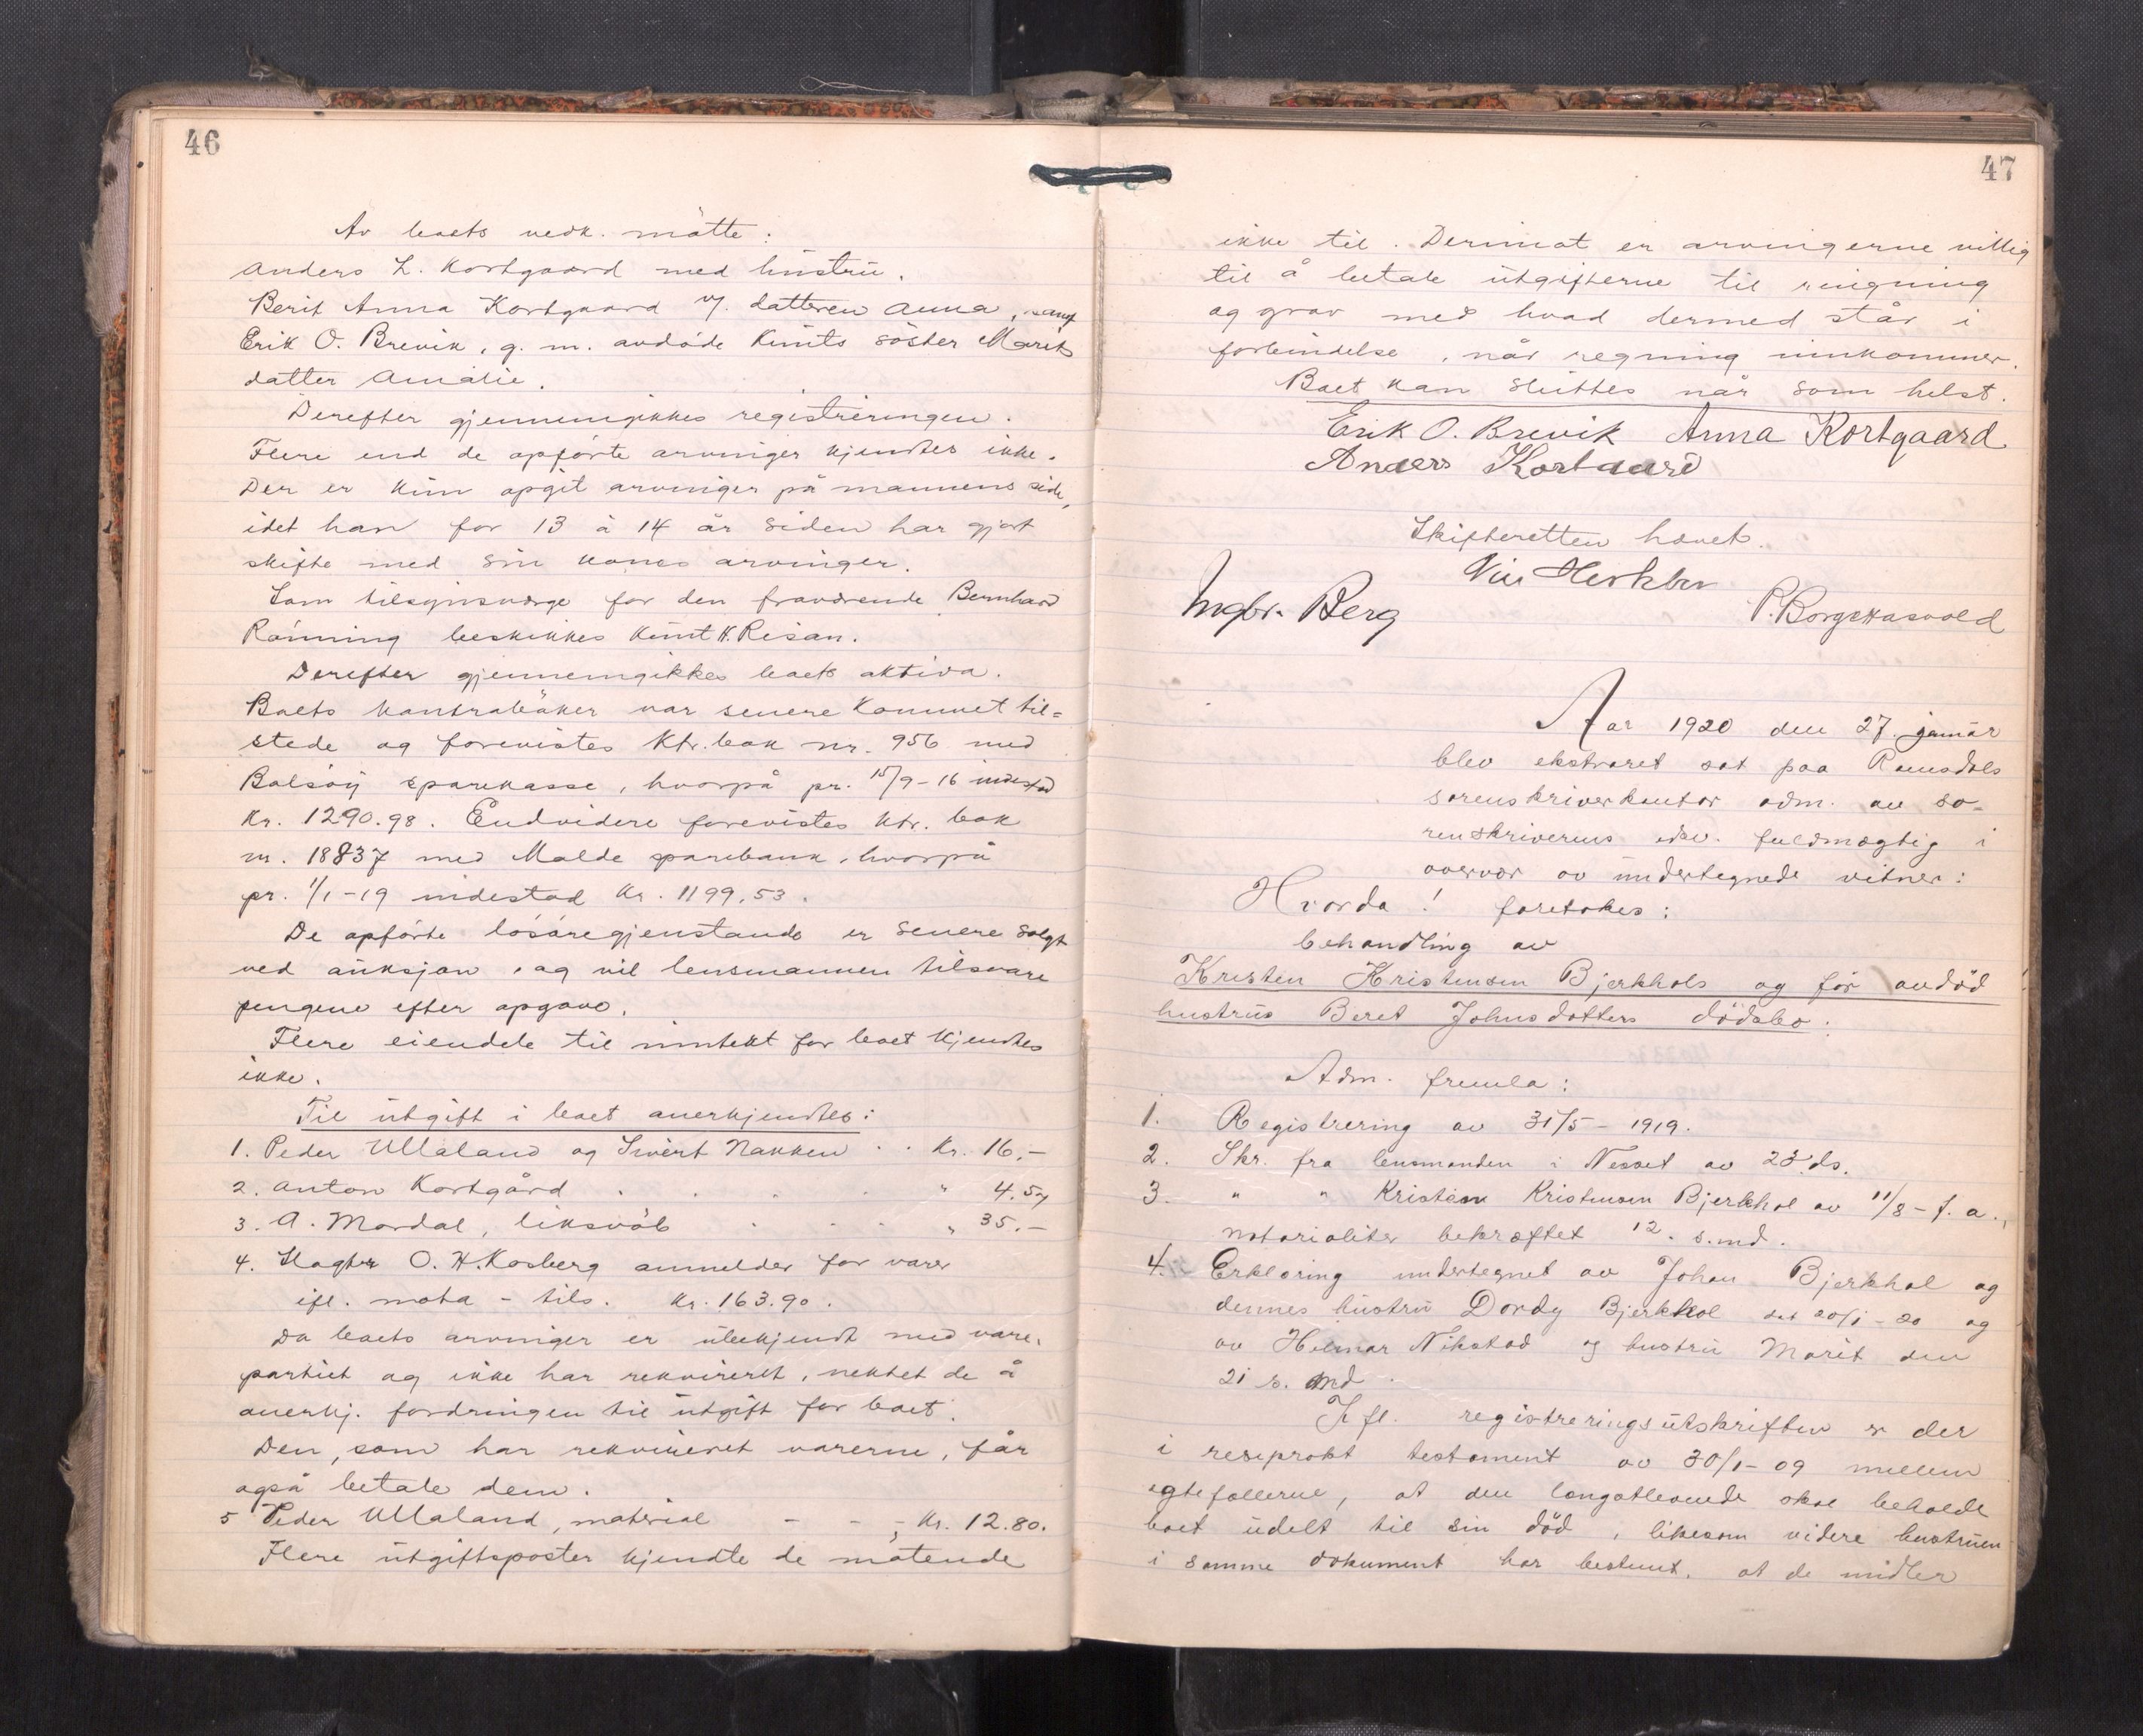 46
Av boets vedk. møtte:
Anders L. Kortgaard med hustru.
Berit Anna Kortgaard v/. datteren Anna, samt
Erik O. Brevik, g. m. avdøde Knuts søster Marits
datter Amalie.
Derefter gjennemgikkes registreringen.
Flere end de opførte arvinger kjendtes ikke.
Der er kun opgit arvinger på mannens side,
idet han for 13 à 14 år siden har gjort
skifte med sin kones arvinger.
Som tilsynsverge for den fraværende Bernhard
Rønning beskikkes Knut K. Risan.
Derefter gjennemgikkes boets aktiva.
Boets kontrabøker var senere kommet til=
stede og forevistes ktr. bok nr. 956 med
Bolsøy sparekasse, hvorpå pr. 15/9-16 indestod
kr. 1290.98. Endvidere forevistes ktr. bok
nr. 18837 med Molde sparebank, hvorpå
pr. 1/1-19 indestod kr. 1199,53.
De opførte løsøregjenstande er senere solgt
ved auksjon, og vil lensmannen tilsvare
pengene efter opgave.
Flere eiendele til inntekt for boet kjendtes
ikke.
Til utgift i boet anerkjendtes:
1. Peder Ullaland og Sivert Nakken . . kr. 16.-
2. Anton Kortgård . . . . " 4.50
3. A. Mordal, liksvøb . . . " 35.-
4. O. H. Kosberg anmelder for varer
ifl. nota - tils. kr. 163.90.
Da boets arvinger er ubekjendt med vare-
partiet og ikke har rekvireret, nektet de å
anerkj. fordringen til utgift for boet.
Den, som har rekvireret varerne, får
også betale dem.
5 Peder Ullaland, material - - - kr. 12.80.
Flere utgiftsposter kjendte de møtende
47
ikke til. Derimot er arvingerne villig
til å betale utgifterne til ringning
og grav med hvad dermed står i
forbindelse, når regning innkommer.
Boet kan sluttes når som helst.
Erik O. Brevik Anna Kortgaard
Anders Kortgaard
Skifteretten hævet.
Ingbr. Berg
Aar 1920 den 27. januar
blev ekstraret sat paa Romsdals
sorenskriverkontor adm. av so-
renskriverens edsv. fuldmægtig i
overvær av undertegnede vitner:
Hvorda! foretokes:
behandling av
Kristen Kristensen Bjerkhols og før avdød
hustrus Beret Johnsdatters dødsbo:
Adm. fremla:
1. Registrering av 31/5 - 1919.
2. Skr. fra lensmanden i Nesset av 23. ds.
3. " " Kristian Kristensen Bjerkhol av 11/8 - f. a.,
notarialiter bekræftet 12. s. md.
4. Erklæring undertegnet av Johan Bjerkhol og
dennes hustru Dordy Bjerkhol det 20/1 - 20 og
av Hilmar Nikstad og hustru Marit den
21 s. md.
Ifl. registreringsutskriften er der
i resiprokt testament av 30/1-09 mellem
egtefællerne, at den længstlevende skal beholde
boet udelt til sin død, likesom videre hustruen
i samme dokument har bestemt, at de midler